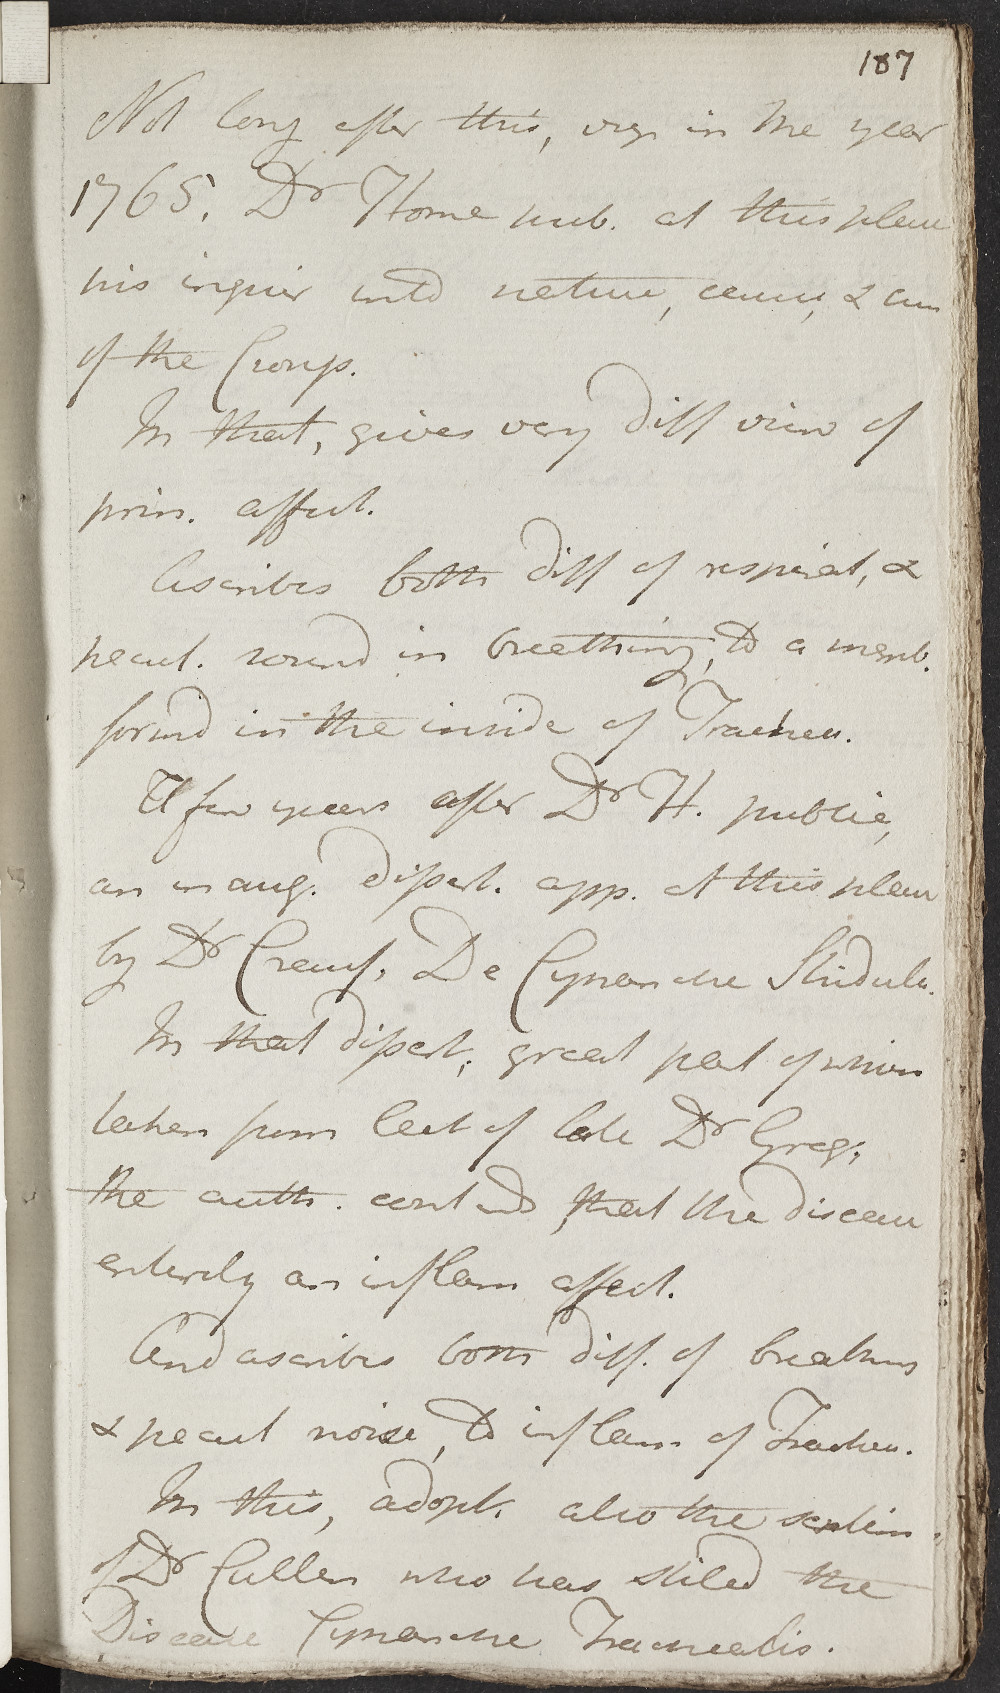 187
Not long after this, viz. in the year
1765. Dr Home pub. at this place
his inquir into nature, cause, & cure
of the Croup.
In that, gives very diff view of
prin. affect.
Ascribes both diff of respirat, &
pecul. sound in breathing, to a memb.
formd in the inside of Trachea.
A few years after Dr H. public,
an inaug. dissert. app. at this place
by Dr Crauf. De Cynanche Stridula.
In that dissert, great part of which
taken from lect of late Dr Greg,
the auth. contends, that the disease
entirely an inflam affect.
And ascribes both diff. of breathing
& pecul noise, to inflam of Trachea.
In this, adopt. also the sentim.
of Dr Cullen who has stiled the
Disease Cynanche Trachealis.